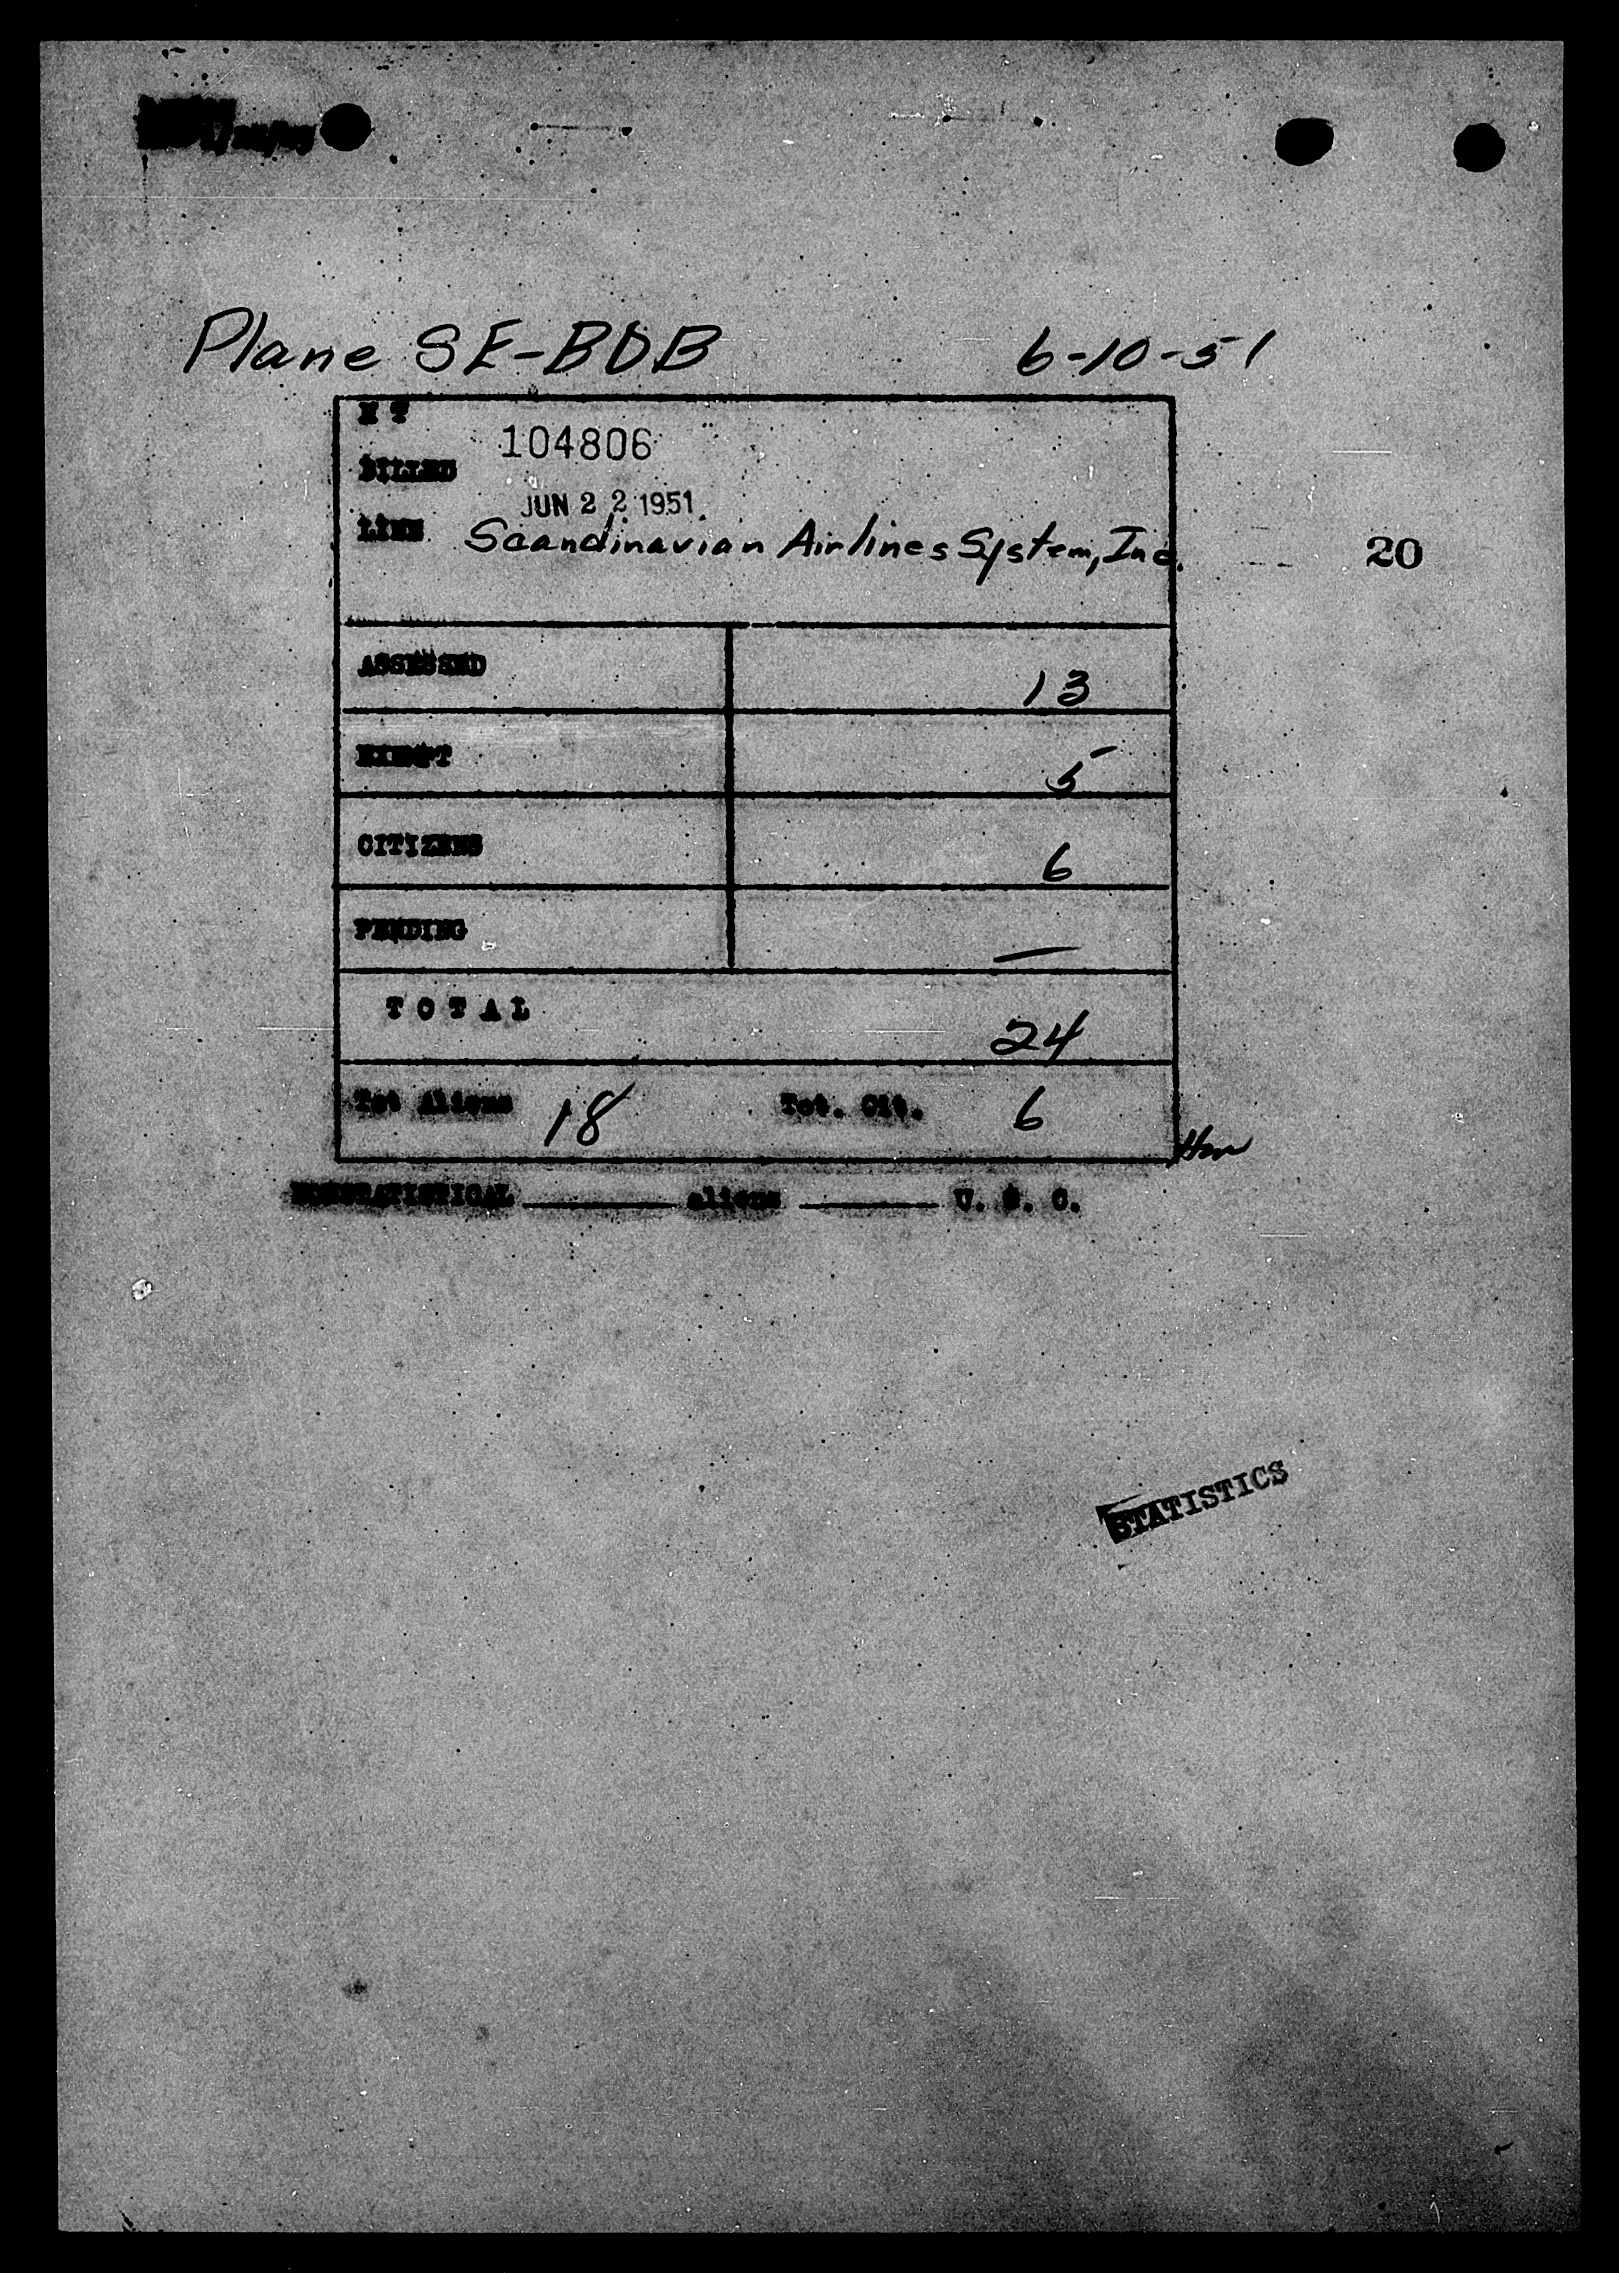 Plane SE-BDB 6-10-51
104806
BILLED
JUN 22 1951
LINE Scandinavian Airlines System, Inc.
20
ASSESSED 13
EXEMPT 5
CITIZENS 6
PENDING —
TOTAL 24
Tot Aliens 18 Tot. Cit. 6
NONSTATISTICAL ______ aliens ______ U. S. C.
STATISTICS